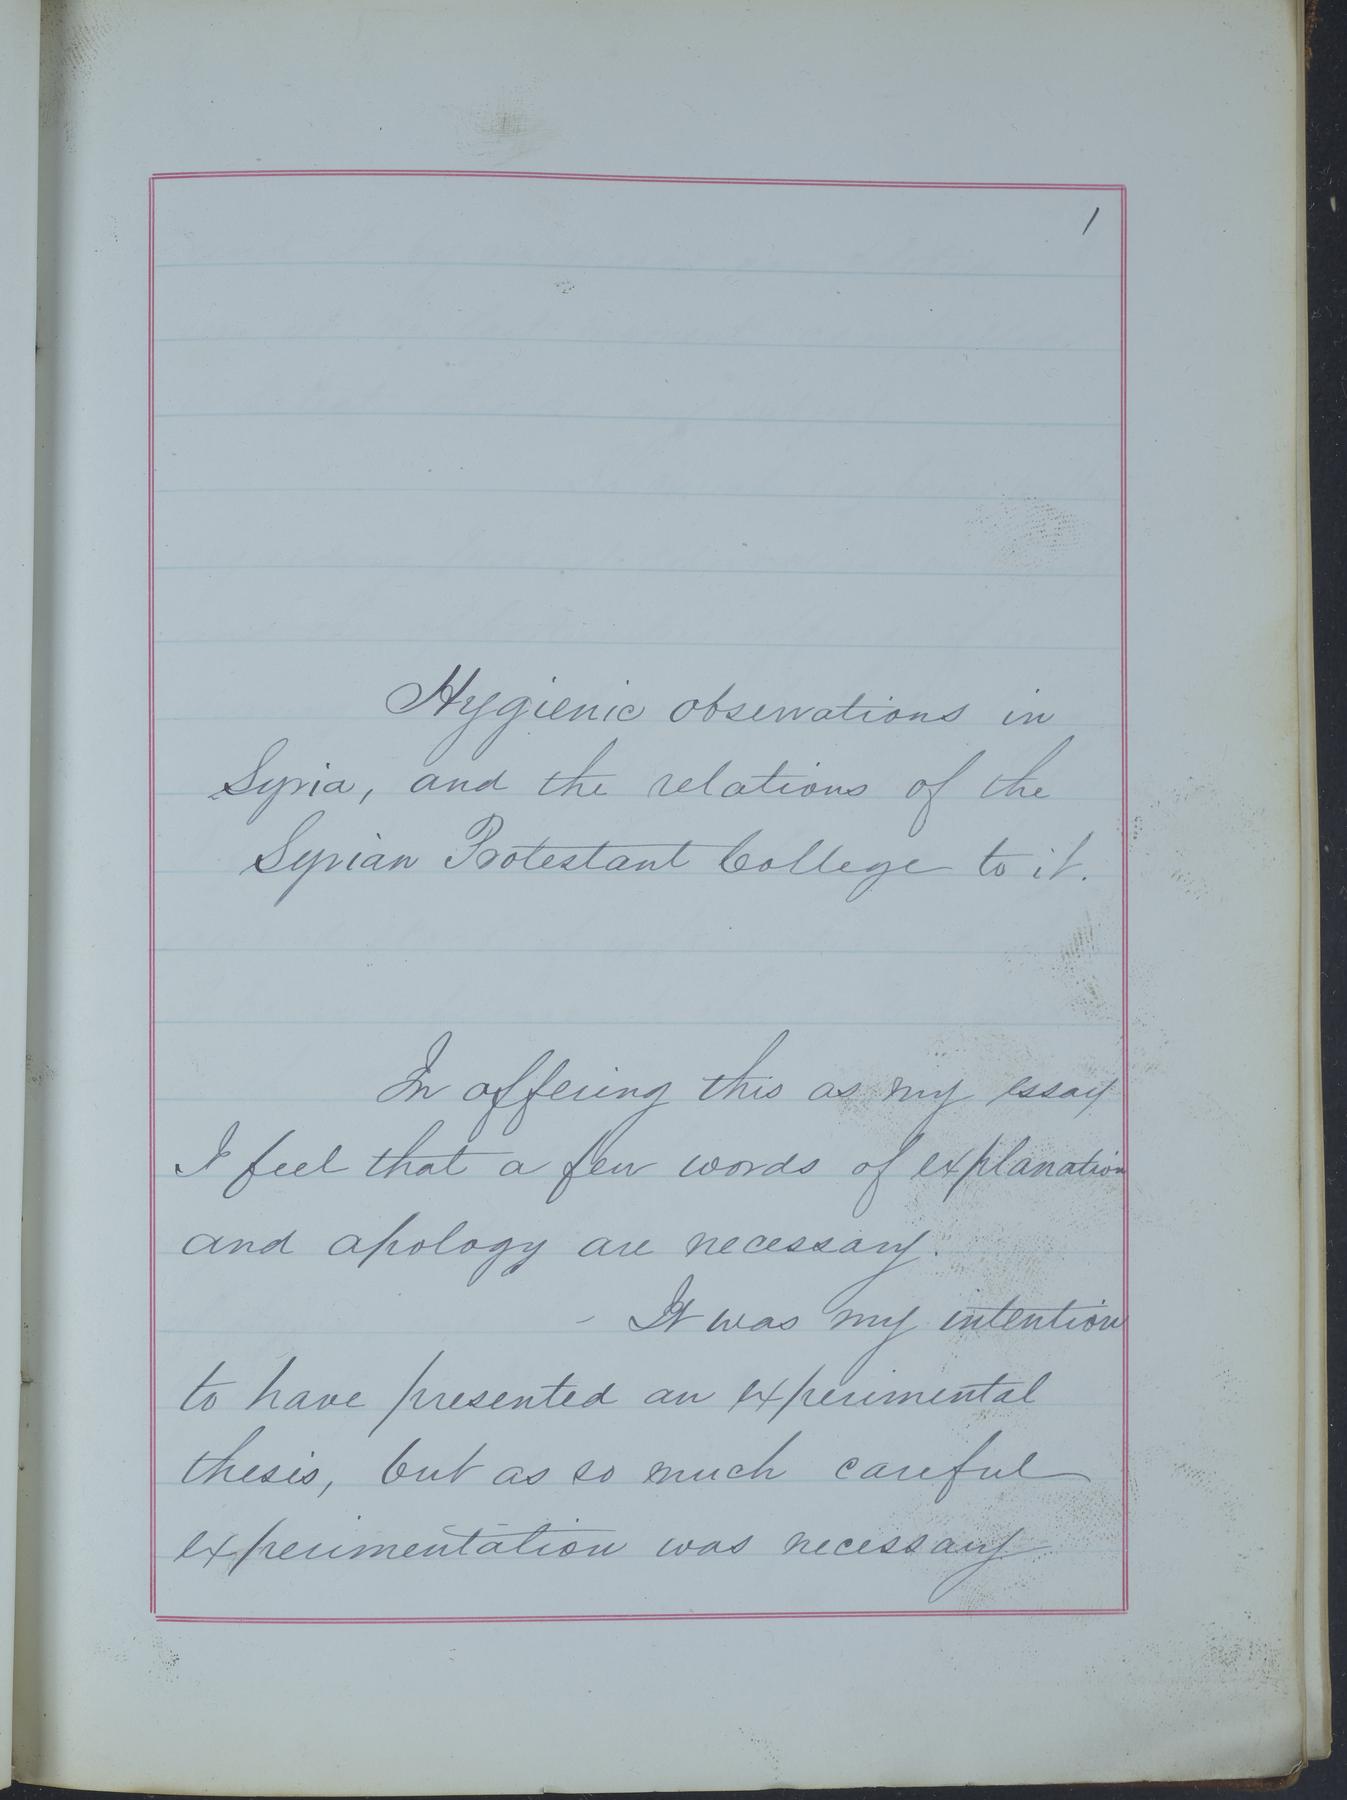 1
Hygienic observations in
Syria, and the relations of the
Syrian Protestant College to it.
In offering this as my essay
I feel that a few words of explanation
and apology are necessary.
- It was my intention
to have presented an experimental
thesis, but as so much careful
experimentation was necessary